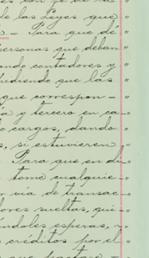 de las Leyes que
— Para que de
personas que deban
ando contadores y
udiendo que las
que correspon-
ia y tercero en ca
o cargos, dando
s, si estuvieren
Para que en di
tome cualquie-
r via de transac
ores sueltas, qui
ndoles esperas, y
créditos por el